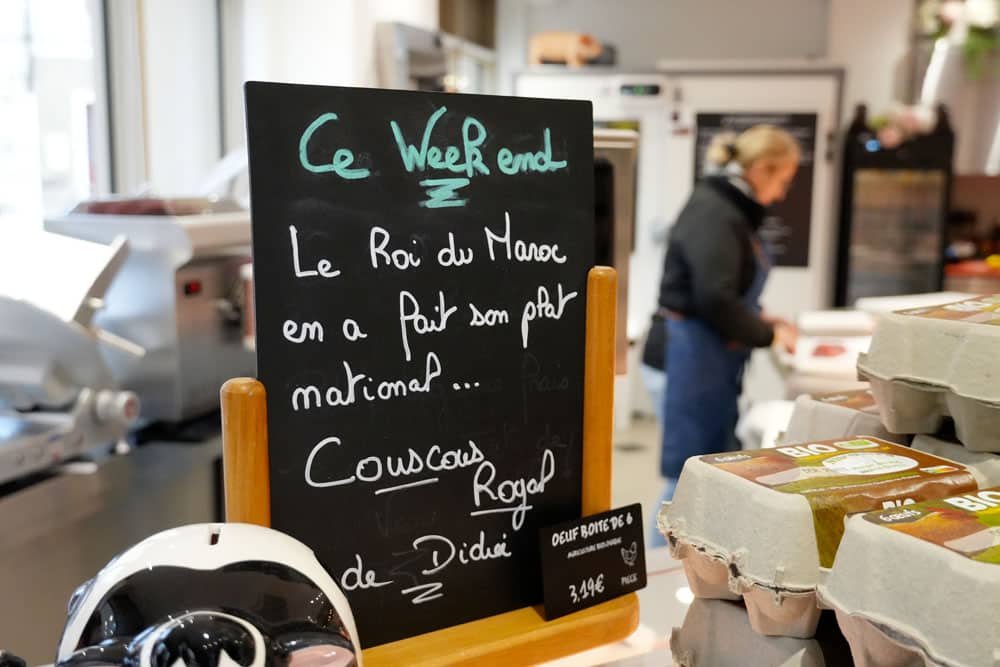 Ce Week end
Le Roi du Maroc
en a fait son plat
national...
Couscous
Royal
de Didier
OEUF BOITE DE 6
3.19€
PIECE
BIO
6 œufs
BIO
BIO
6 œufs